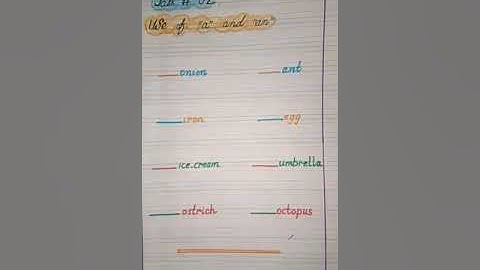 Use of "a" and "an"
onion ant
iron egg
ice.cream umbrella
ostrich octopus